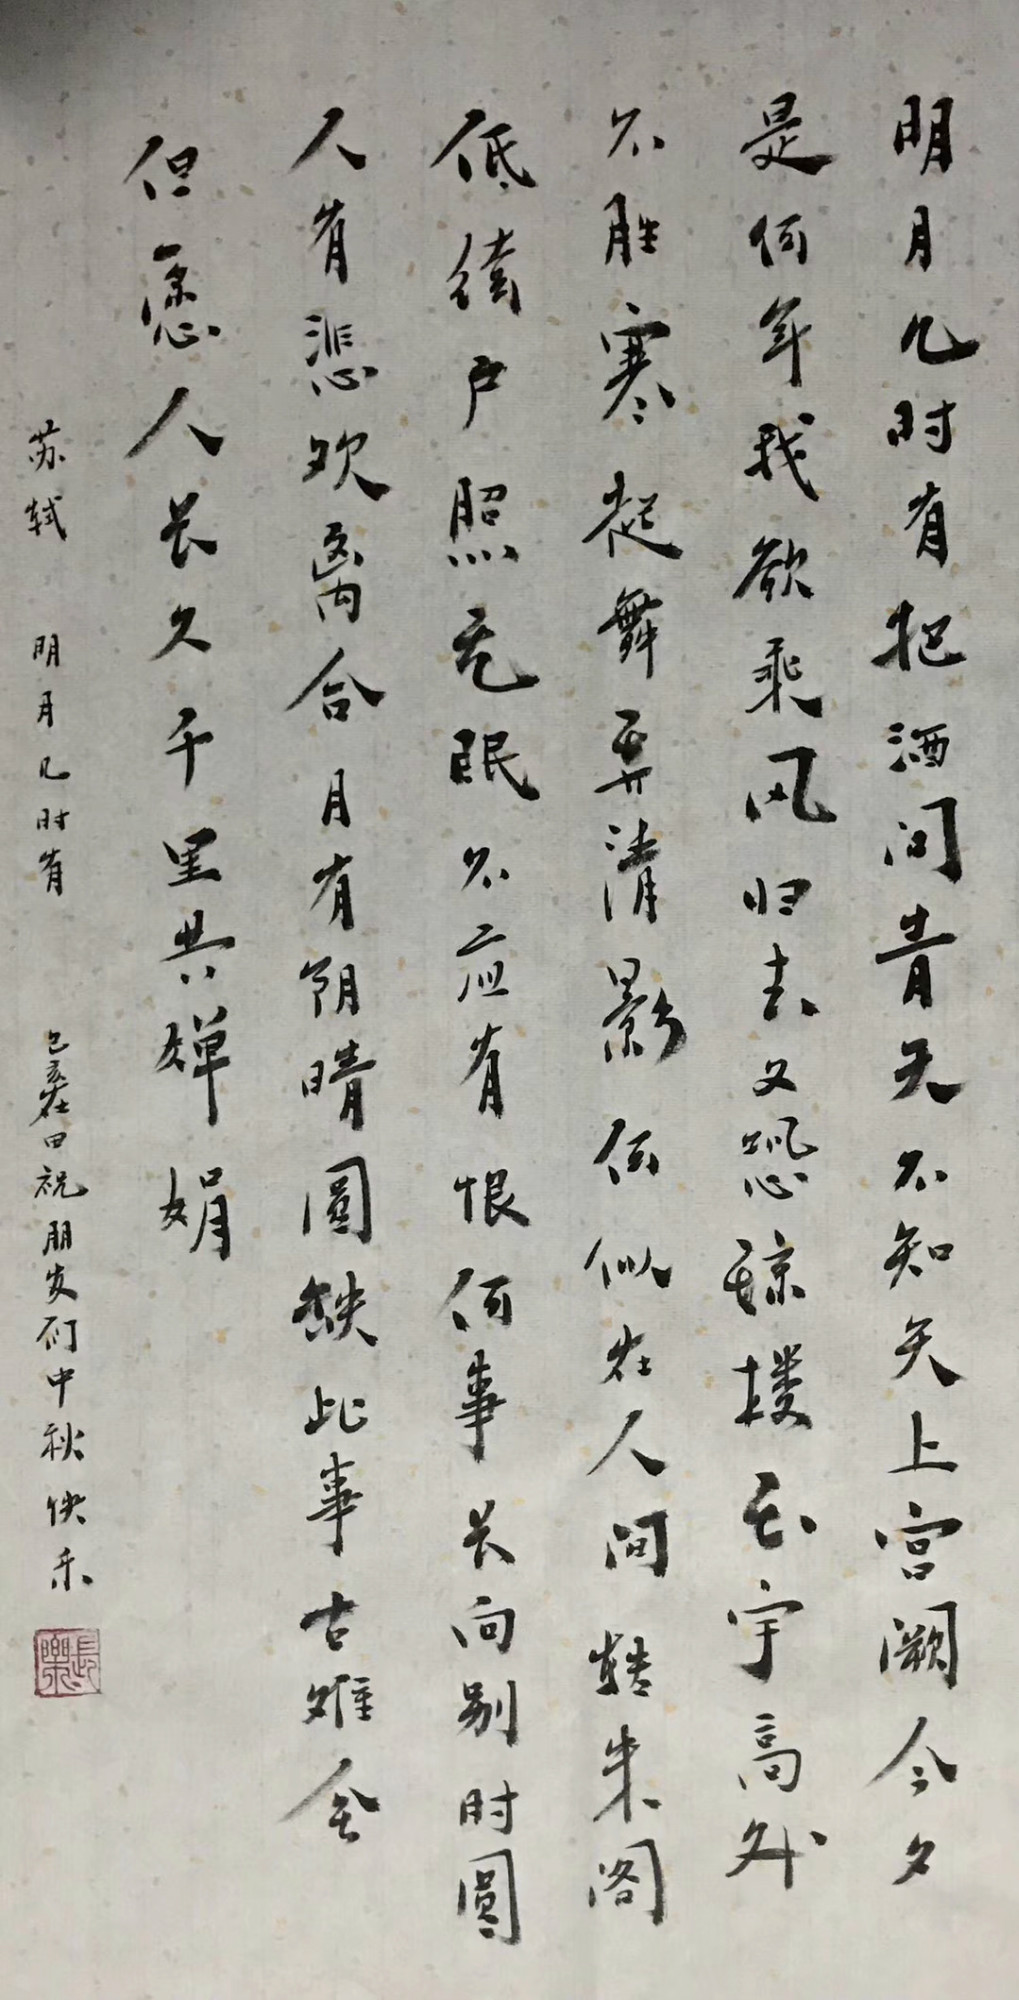 明月几时有把酒问青天不知天上宫阙今夕
是何年我欲乘风归去又恐琼楼玉宇高处
不胜寒起舞弄清影何似在人间转朱阁
低绮户照无眠不应有恨何事长向别时圆
人有悲欢离合月有阴晴圆缺此事古难全
但愿人长久千里共婵娟
苏轼 明月几时有 己亥在田祝朋友们中秋快乐
長樂